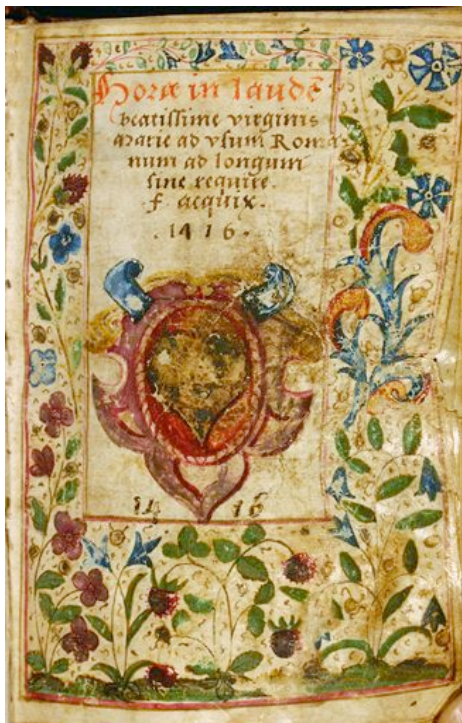 Horæ in laudē
beatissime virginis
Marie ad vsum Roma
num ad longum
sine require.
f. acquix.
.1416.
14 16